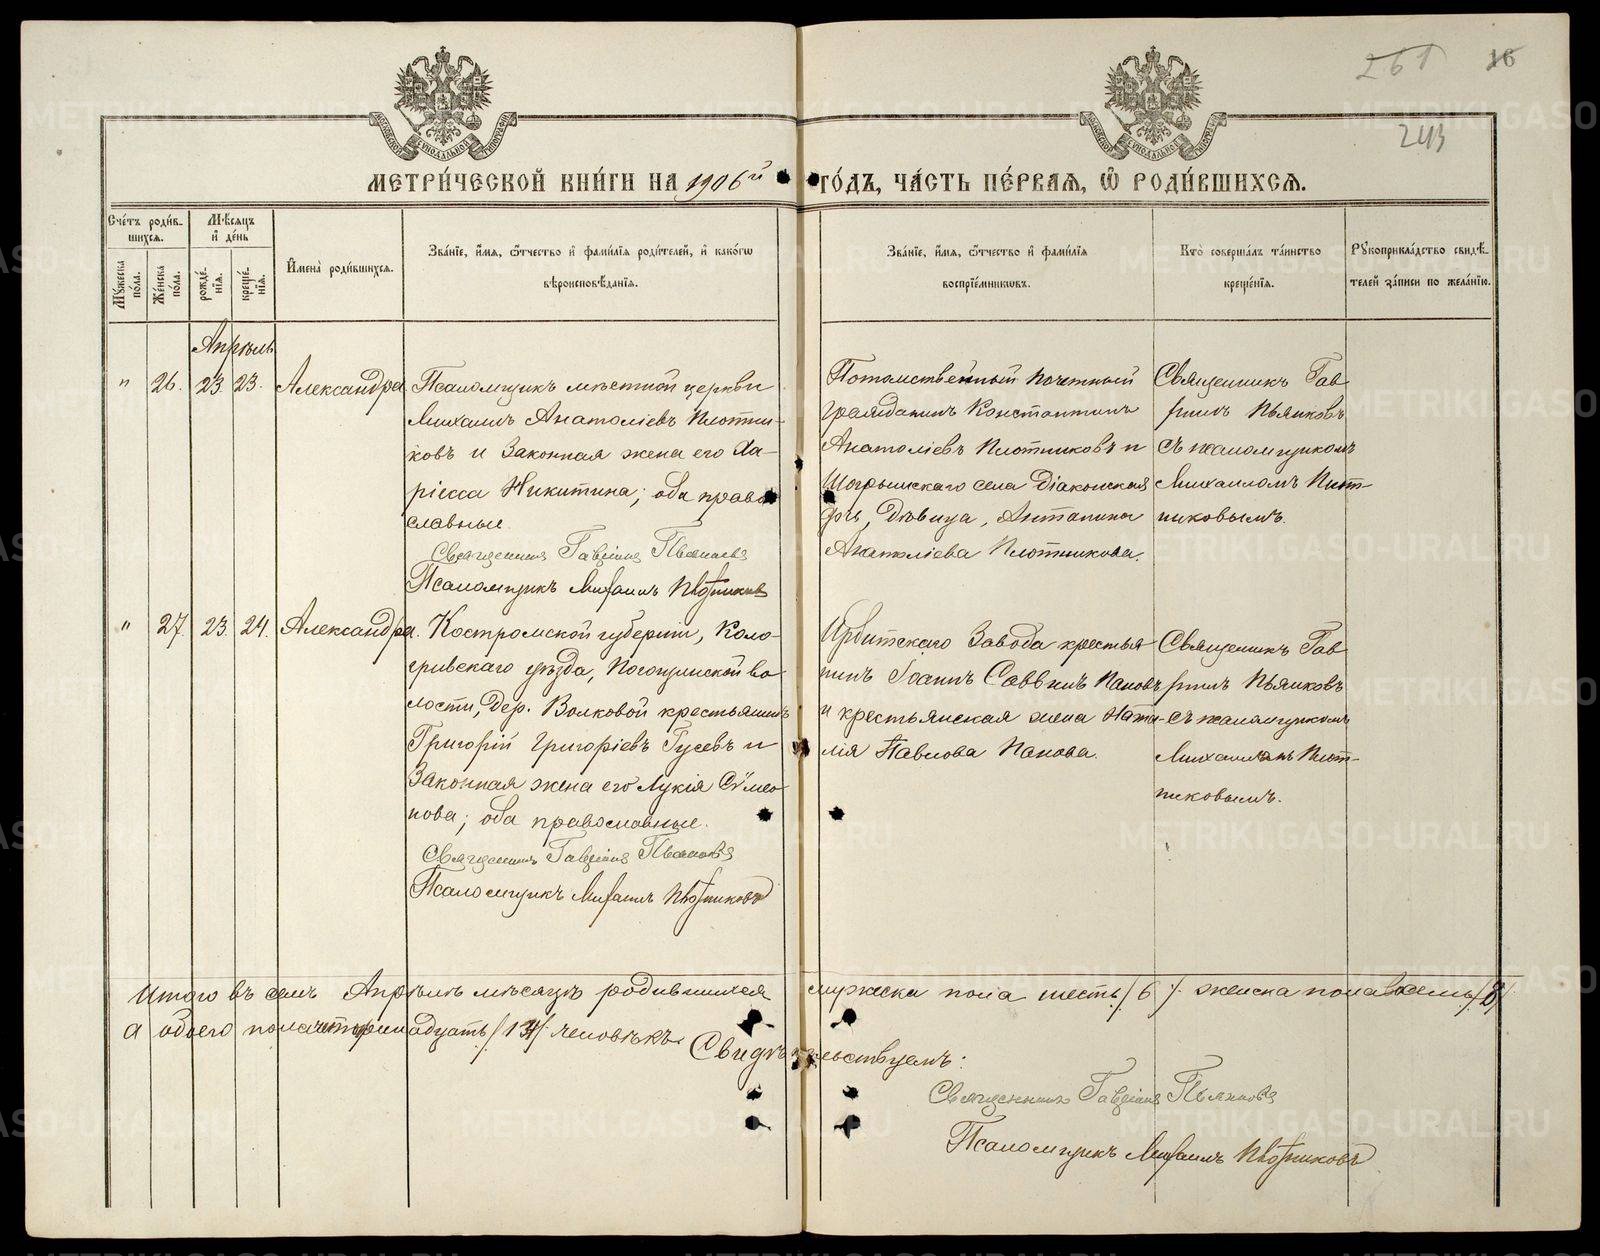 261 16
243
МЕТРИ́ЧЕСКОЙ КНИ́ГИ НА 1906й ГО́ДЪ, ЧА́СТЬ ПЕ́РВАЯ, Ѽ РОДИ́ВШИХСѦ.
Сче́тъ роди́в-
шихсѧ.
Мꙋ́жеска по́ла.
Же́нска по́ла.
Мѣ́сѧцъ
и҆ де́нь
рожде́-
нїѧ.
креще́-
нїѧ.
И҆мена̀ роди́вшихсѧ.
Зва́нїе, и҆́мѧ, ѻ҆́тчество и҆ фами́лїѧ роди́телей, и҆ како́гѡ
вѣроисповѣ́данїѧ.
Зва́нїе, и҆́мѧ, ѻ҆́тчество и҆ фами́лїѧ
воспрїе́мникѡвъ.
Кто̀ соверша́лъ та́инство
креще́нїѧ.
Рꙋкоприкла́дство свидѣ́-
телей за́писи по жела́нїю.
Апрѣль
" 26. 23 23. Александра
Псаломщикъ мѣстной церкви
Михаилъ Анатоліевъ Плотни-
ковъ и законная жена его Ла-
рисса Никитина; оба право
славные.
Священникъ Гавріилъ Пьянковъ
Псаломщикъ Михаилъ Плотниковъ
Потомственный почетный
гражданинъ Константинъ
Анатоліевъ Плотниковъ и
Шогрышскаго села діаконская
дочь, дѣвица, Антонина
Анатоліева Плотникова.
Священникъ Гав
ріилъ Пьянковъ
съ псаломщикомъ
Михаиломъ Плот-
никовымъ.
" 27. 23. 24. Александра.
Костромской губерніи, Коло-
гривскаго уѣзда, во
лости, дер. Волковой крестьянинъ
Григорій Григоріевъ Гусевъ и
законная жена его Лукія Сѵмео
нова; оба православные.
Священникъ Гавріилъ Пьянковъ
Псаломщикъ Михаилъ Плотниковъ
Ирбитскаго Завода крестья
нинъ Іоаннъ Саввинъ Пановъ
и крестьянская жена Ната-
лія Павлова Панова.
Священникъ Гав
ріилъ Пьянковъ
съ псаломщикомъ
Михаиломъ Плот-
никовымъ.
Итого въ семъ Апрѣлѣ мѣсяцѣ родившихся мужеска пола шесть /6/. женска пола восемь /8/.
а обоего пола четырнадцать /14/ человѣкъ.
Свидѣтельствуемъ:
Священникъ Гавріилъ Пьянковъ
Псаломщикъ Михаилъ Плотниковъ
METRIKI.GASO-URAL.RU